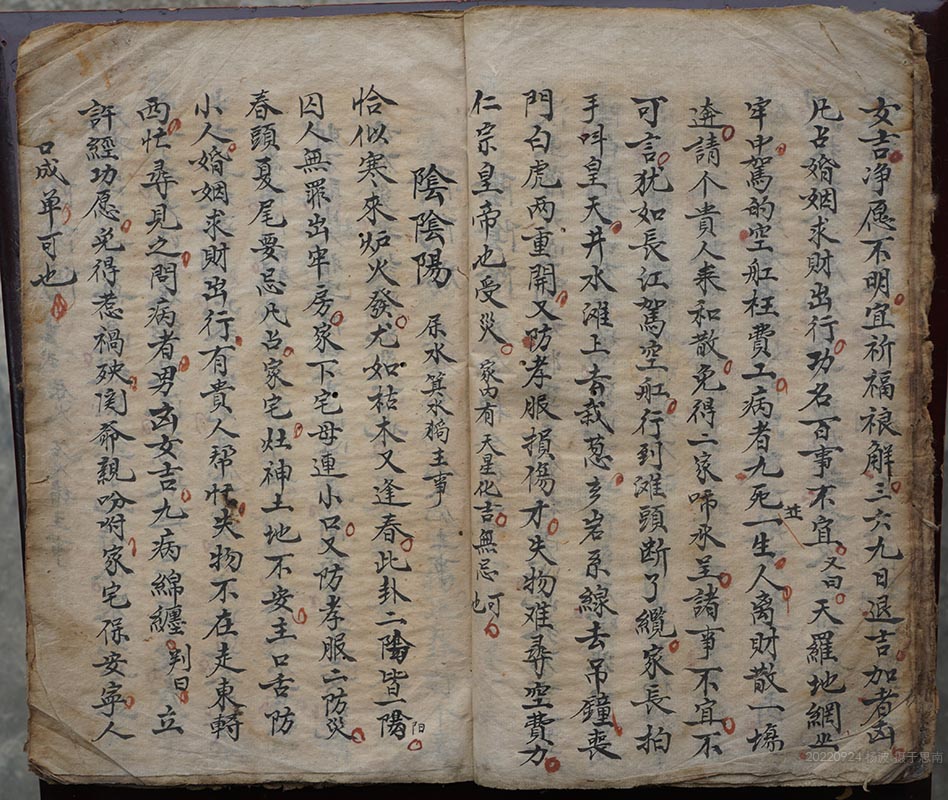 女吉净愿不明宜祈福禳解三六九日退吉加者凶
凡占婚姻求財出行功名百事不宜又曰天羅地網坐
牢中駕的空舡枉費工病者九死一生人离財散一場
遊請个貴人来和散免得二家啼永呈諸事不宜不
可言犹如長江駕空舡行到滩頭断了纜家長拍
手呌皇天井水滩上去栽葱玄岩系線去吊鐘丧
門白虎两重開又防孝服損傷才失物难尋空費力
仁宗皇帝也受災家内有天星化吉無忌可也
陰陰陽
尿水箕水獨主事
恰似寒來炉火發尤如枯木又逢春此卦二陽皆一陽
阳
囚人無罪出牢房家下宅母連小口又防孝服二防災
春頭夏尾要忌凡占家宅灶神土地不安主口舌防
小人婚姻求財出行有貴人帮忙失物不在走東轉
西忙尋見之問病者男凶女吉九病綿纒判曰立
許經功愿免得惹禍殃関爺親吩咐家宅保安寧人
口成单可也
20220924 杨波 摄于思南